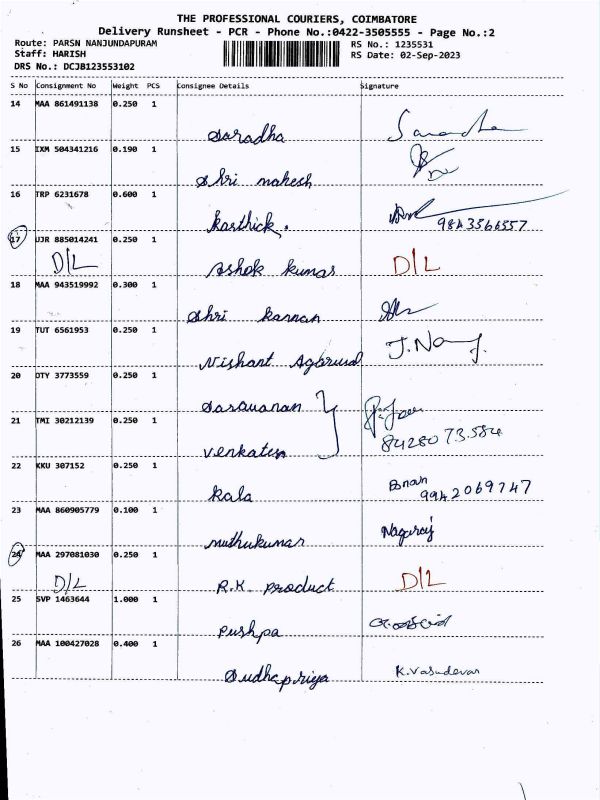 THE PROFESSIONAL COURIERS, COIMBATORE
Delivery Runsheet - PCR - Phone No.:0422-3505555 - Page No.:2
Route: PARSN NANJUNDAPURAM
RS No.: 1235531
Staff: HARISH
RS Date: 02-Sep-2023
DRS No.: DCJB123553102
S No Consignment No Weight PCS Consignee Details Signature
14 MAA 861491138 0.250 1
Saradha
15 IXM 504341216 0.190 1
Shri mahesh
16 TRP 6231678 0.600 1
Karthick. 9843566557
17 UJR 885014241 0.250 1
D/L Ashok kumar D/L
18 MAA 943519992 0.300 1
Shri kannan
19 TUT 6561953 0.250 1
Nishant Agarwal
20 OTY 3773559 0.250 1
Saravanan
21 TMI 30212139 0.250 1
Venkatesn 8428073584
22 KKU 307152 0.250 1
kala 9942069747
23 MAA 860905779 0.100 1
muthukumar Nagaraj
24 MAA 297081030 0.250 1
D/L R.K. product D/L
25 SVP 1463644 1.000 1
Pushpa
26 MAA 100427028 0.400 1
Sudhapriya K.Vasudevan